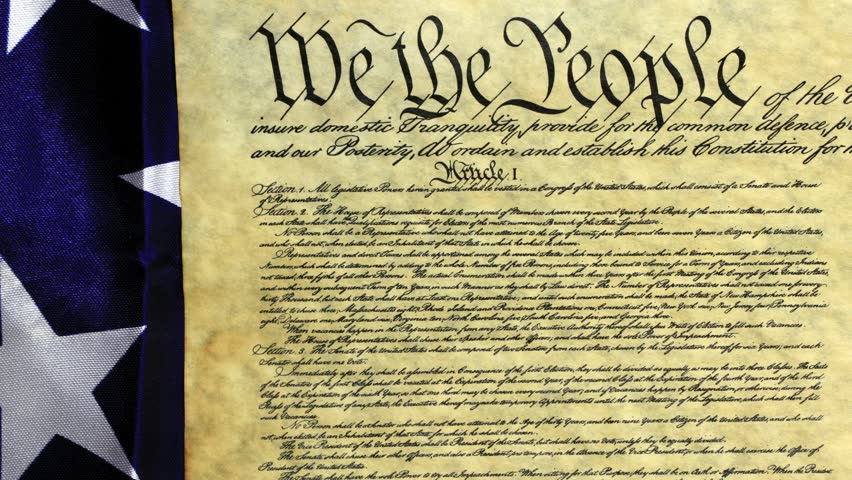 We the People of the
insure domestic Tranquility, provide for the common defence, p
and our Posterity, do ordain and establish this Constitution for
Article I.
Section 1. All legislative Powers herein granted shall be vested in a Congress of the United States, which shall consist of a Senate and House
of Representatives.
Section 2. The House of Representatives shall be composed of Members chosen every second Year by the People of the several States, and the Electors
in each State shall have Qualifications requisite for Electors of the most numerous Branch of the State Legislature.
No Person shall be a Representative who shall not have attained to the Age of twenty five Years, and been seven Years a Citizen of the United States,
and who shall not, when elected, be an Inhabitant of that State in which he shall be chosen.
Representatives and direct Taxes shall be apportioned among the several States which may be included within this Union, according to their respective
Numbers, which shall be determined by adding to the whole Number of free Persons, including those bound to Service for a Term of Years, and excluding Indians
not taxed, three fifths of all other Persons. The actual Enumeration shall be made within three Years after the first Meeting of the Congress of the United States,
and within every subsequent Term of ten Years, in such Manner as they shall by Law direct. The Number of Representatives shall not exceed one for every
thirty Thousand, but each State shall have at Least one Representative; and until such enumeration shall be made, the State of New Hampshire shall be
entitled to chuse three, Massachusetts eight, Rhode Island and Providence Plantations one, Connecticut five, New York six, New Jersey four, Pennsylvania
eight, Delaware one, Maryland six, Virginia ten, North Carolina five, South Carolina five, and Georgia three.
When vacancies happen in the Representation from any State, the Executive Authority thereof shall issue Writs of Election to fill such Vacancies.
The House of Representatives shall chuse their Speaker and other Officers; and shall have the sole Power of Impeachment.
Section 3. The Senate of the United States shall be composed of two Senators from each State, chosen by the Legislature thereof, for six Years; and each
Senator shall have one Vote.
Immediately after they shall be assembled in Consequence of the first Election, they shall be divided as equally as may be into three Classes. The Seats
of the Senators of the first Class shall be vacated at the Expiration of the second Year, of the second Class at the Expiration of the fourth Year, and of the third
Class at the Expiration of the sixth Year, so that one third may be chosen every second Year; and if Vacancies happen by Resignation, or otherwise, during the
Recess of the Legislature of any State, the Executive thereof may make temporary Appointments until the next Meeting of the Legislature, which shall then fill
such Vacancies.
No Person shall be a Senator who shall not have attained to the Age of thirty Years, and been nine Years a Citizen of the United States, and who shall
not, when elected, be an Inhabitant of that State for which he shall be chosen.
The Vice President of the United States shall be President of the Senate, but shall have no Vote, unless they be equally divided.
The Senate shall chuse their other Officers, and also a President pro tempore, in the Absence of the Vice President, or when he shall exercise the Office of
President of the United States.
The Senate shall have the sole Power to try all Impeachments. When sitting for that Purpose, they shall be on Oath or Affirmation. When the President